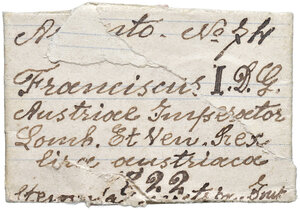 No 74
Franciscus I. D. G.
Austriae Imperator
Lomb. Et Ven. Rex
lira austriaca
1822